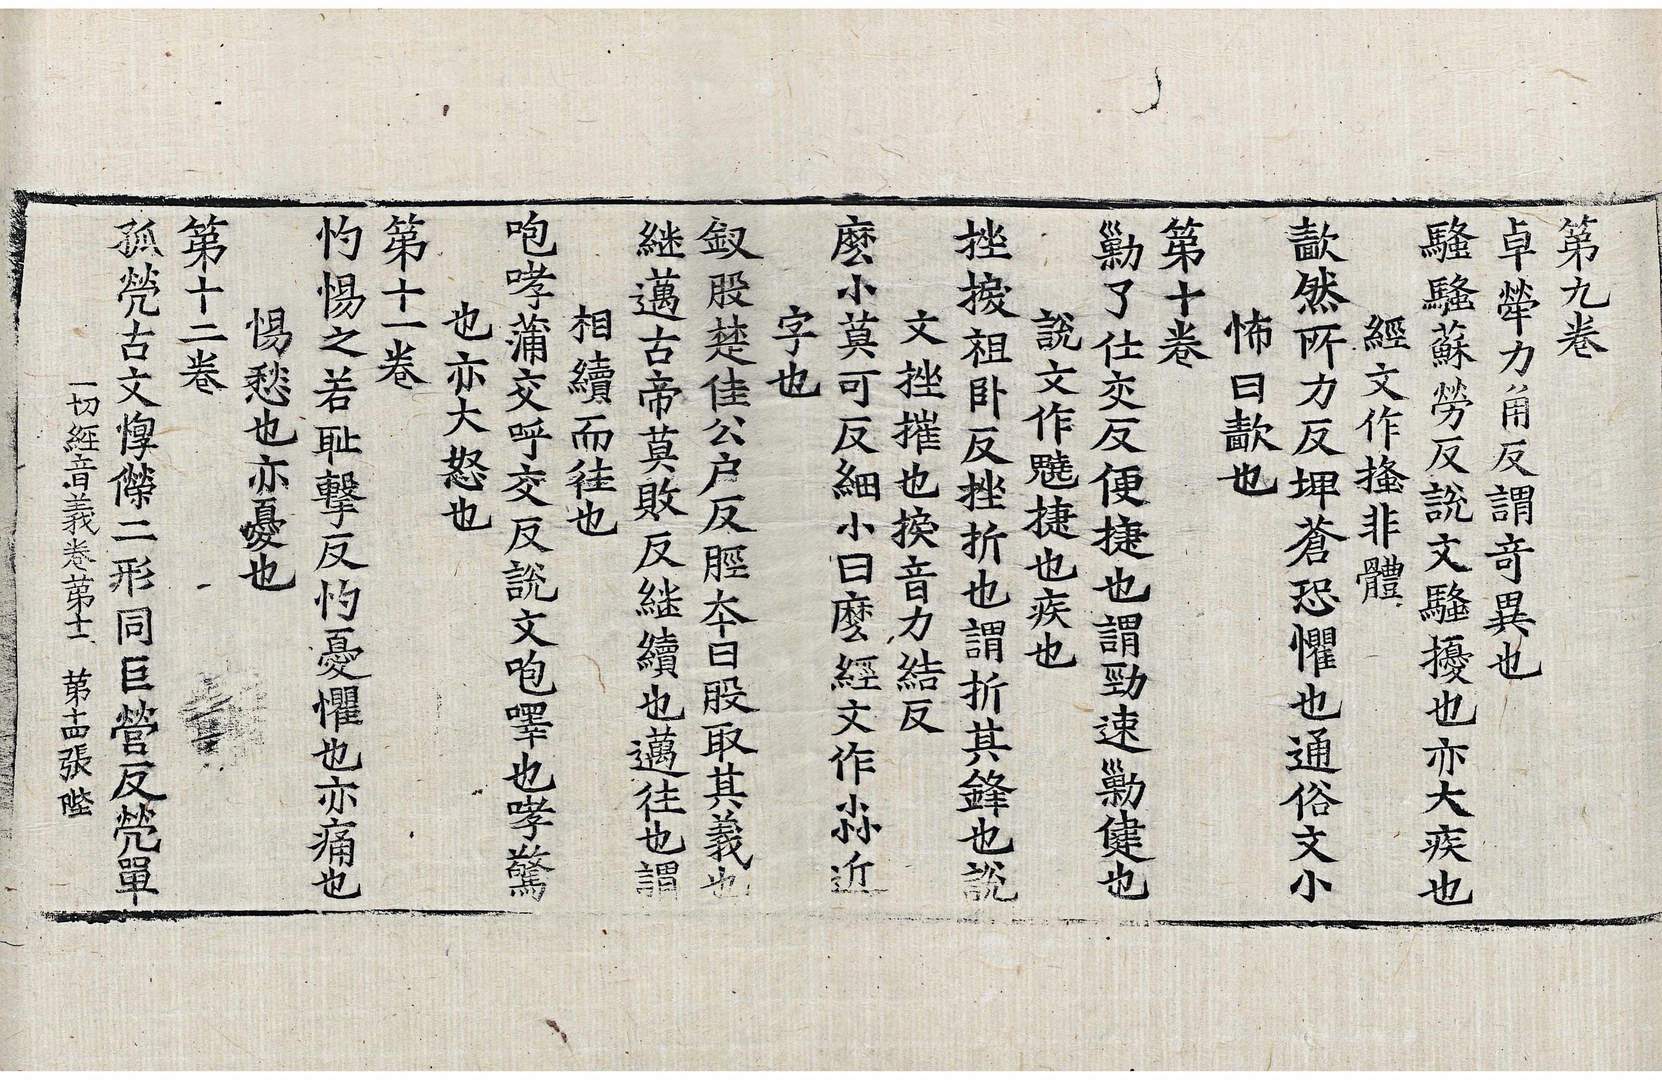 第九卷
卓犖力角反謂竒異也
騷騷蘇勞反說文騷擾也亦大疾也
經文作搔非體
歗然所力反埤蒼恐懼也通俗文小
怖曰歗也
第十卷
勦了仕交反便捷也謂勁速勦健也
說文作魑捷也疾也
挫捩祖卧反挫折也謂折其鋒也說
文挫摧也捩音力結反
麼小莫可反細小曰麼經文作尛近
字也
釵股楚佳公户反脛夲曰股取其義也
継邁古帝莫敗反継續也邁往也謂
相續而往也
咆哮蒲交呼交反說文咆嘷也哮驚
也亦大怒也
第十一卷
忉惕之若耻擊反忉憂懼也亦痛也
惕愁也亦憂也
第十二卷
孤煢古文惸㒍二形同巨營反煢單
一切經音義卷第十一 第十四張 陛